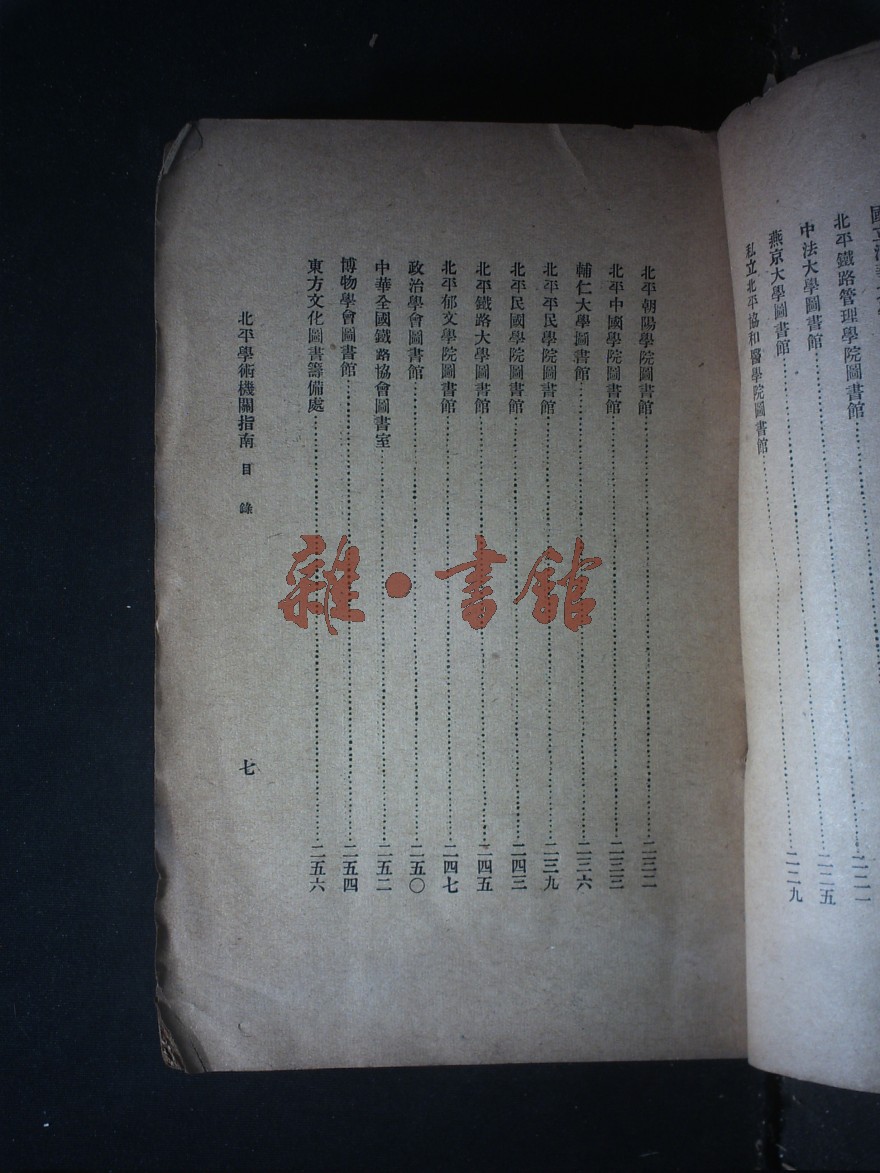 國立
北平鐵路管理學院圖書館
中法大學圖書館……二二五
燕京大學圖書館……二二九
私立北平協和醫學院圖書館
北平朝陽學院圖書館……二三二
北平中國學院圖書館……二三三
輔仁大學圖書館……二三六
北平平民學院圖書館……二三九
北平民國學院圖書館……二四三
北平鐵路大學圖書館……二四五
北平郁文學院圖書館……二四七
政治學會圖書館……二五〇
中華全國鐵路協會圖書室……二五二
博物學會圖書館……二五四
東方文化圖書籌備處……二五六
北平學術機關指南 目錄 七
雜·書館